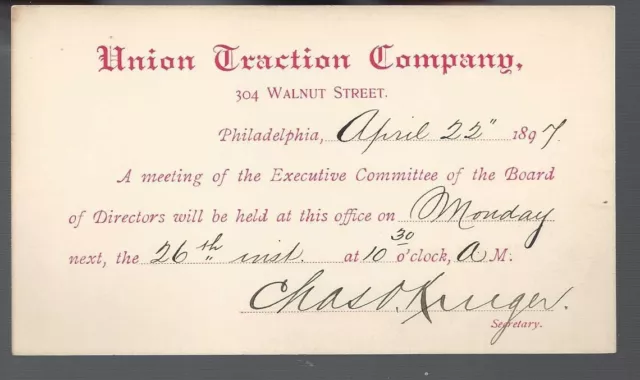 Union Traction Company,
304 WALNUT STREET.
Philadelphia, April 22" 1897
A meeting of the Executive Committee of the Board
of Directors will be held at this office on Monday
next, the 26th inst. at 10 30 o'clock, A M.
Chas O. Kruger.
Secretary.